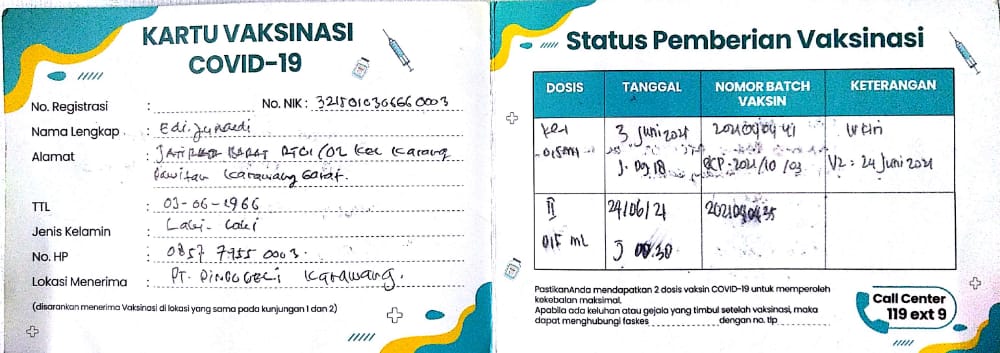 KARTU VAKSINASI
COVID-19
No. Registrasi : No. NIK : 3215010306660003
Nama Lengkap : Edi Junaedi
Alamat : JATIRASA BARAT RT01/02 Kel Karang
Pawitan Karawang Barat.
TTL : 03-06-1966
Jenis Kelamin : Laki-laki
No. HP : 0857 7755 0003.
Lokasi Menerima : PT. Karawang.
(disarankan menerima Vaksinasi di lokasi yang sama pada kunjungan 1 dan 2)
Status Pemberian Vaksinasi
DOSIS TANGGAL NOMOR BATCH VAKSIN KETERANGAN
Ke 1 3 Juni 2021 lv Kiri
J. 09.18 BCP: 2021/10/03 V2 : 24 Juni 2021
II 24/06/21
0,5 mL J
PastikanAnda mendapatkan 2 dosis vaksin COVID-19 untuk memperoleh
kekebalan maksimal.
Apabila ada keluhan atau gejala yang timbul setelah vaksinasi, maka
dapat menghubungi faskes dengan no. tlp
Call Center
119 ext 9